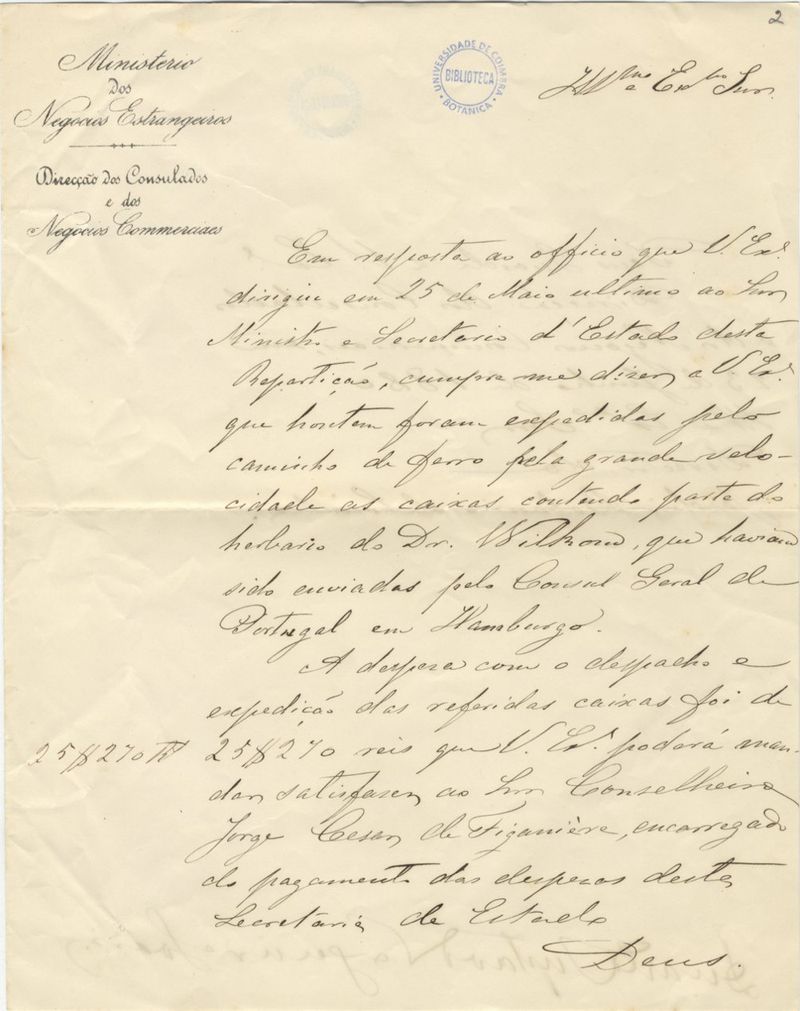 2
Ministerio
dos
Negocios Estrangeiros
Direcção dos Consulados
e dos
Negocios Commerciaes
UNIVERSIDADE DE COIMBRA
BIBLIOTECA
BOTANICA
Illmo e Exmo Snr.
Em resposta ao officio que V. Exª
dirigiu em 25 de Maio ultimo ao Snr
Ministro e Secretario d'Estado desta
Repartição, cumpre me dizer a V. Exª
que hontem foram expedidas pelo
caminho de ferro pela grande velo-
cidade as caixas contendo parte do
herbario do Dr. Wilkom, que haviam
sido enviadas pelo Consul Geral de
Portugal em Hamburgo.
A despeza com o despacho e
expedição das referidas caixas foi de
25$270 reis que V. Exª poderá man-
dar satisfazer ao Snr Conselheiro
Jorge Cesar de Figanière, encarregado
do pagamento das despezas desta
Secretaria de Estado
25$270 Rs
Deus.